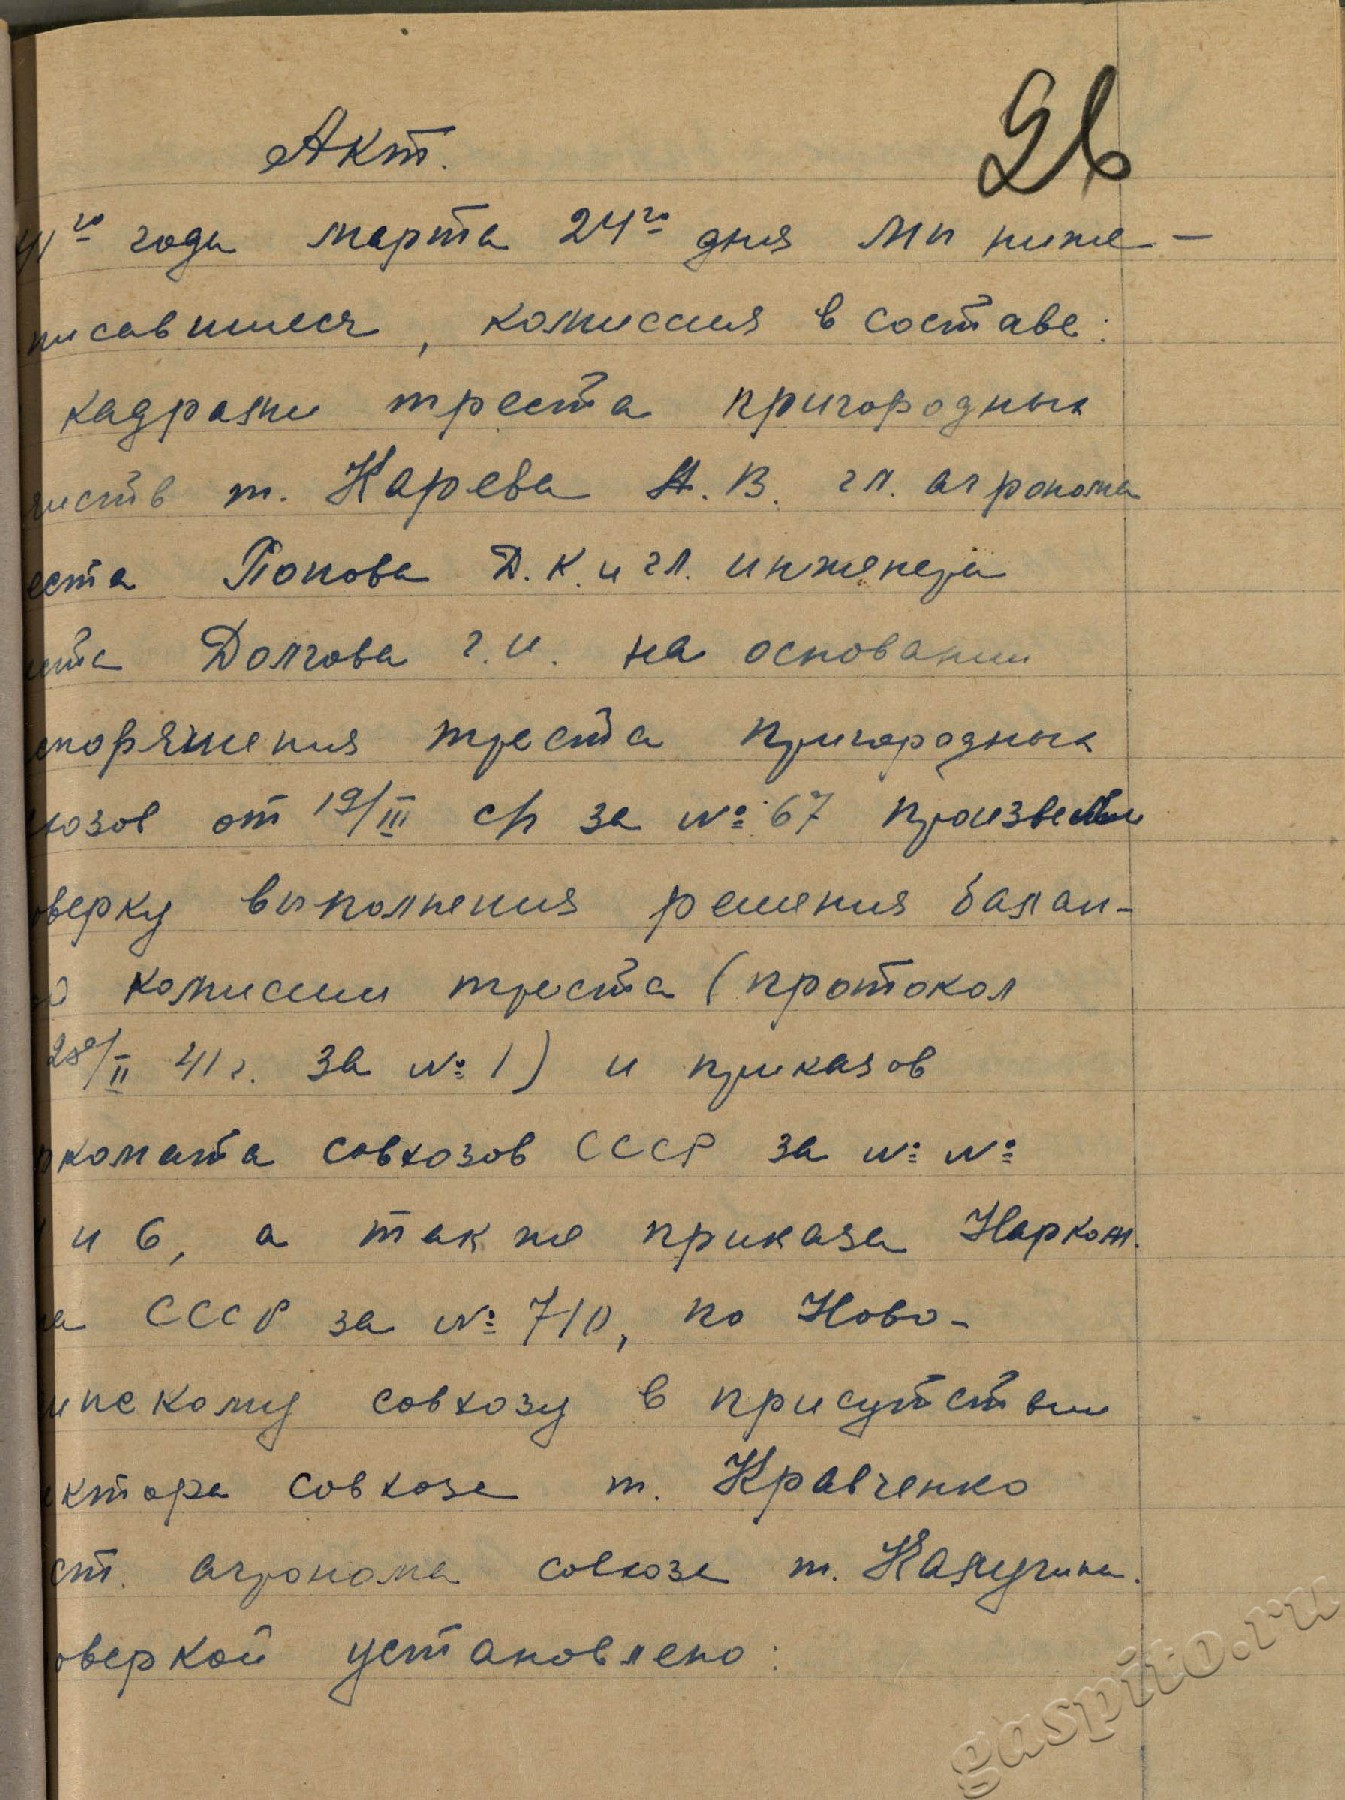 26
Акт.
41го года марта 24го дня Мы ниже-
писавшиеся, комиссия в составе:
кадрами треста пригородных
т. Карева А.В. гл. агронома
еста Попова Д.К. и гл. инженера
ста Долгова Г.И. на основании
споряжения треста пригородных
хозов от 19/III с/г за №67 произвели
оверку выполнения решения балан-
комиссии треста (протокол
28/II 41г. за №1) и приказов
ркомата совхозов СССР за №№
и 6, а так же приказа Нарком.
на СССР за № 710, по Ново-
инскому совхозу в присутствии
ектора совхоза т. Кравченко
ст. агронома совхоза т. Калугина.
оверкой установлено:
gaspito.ru